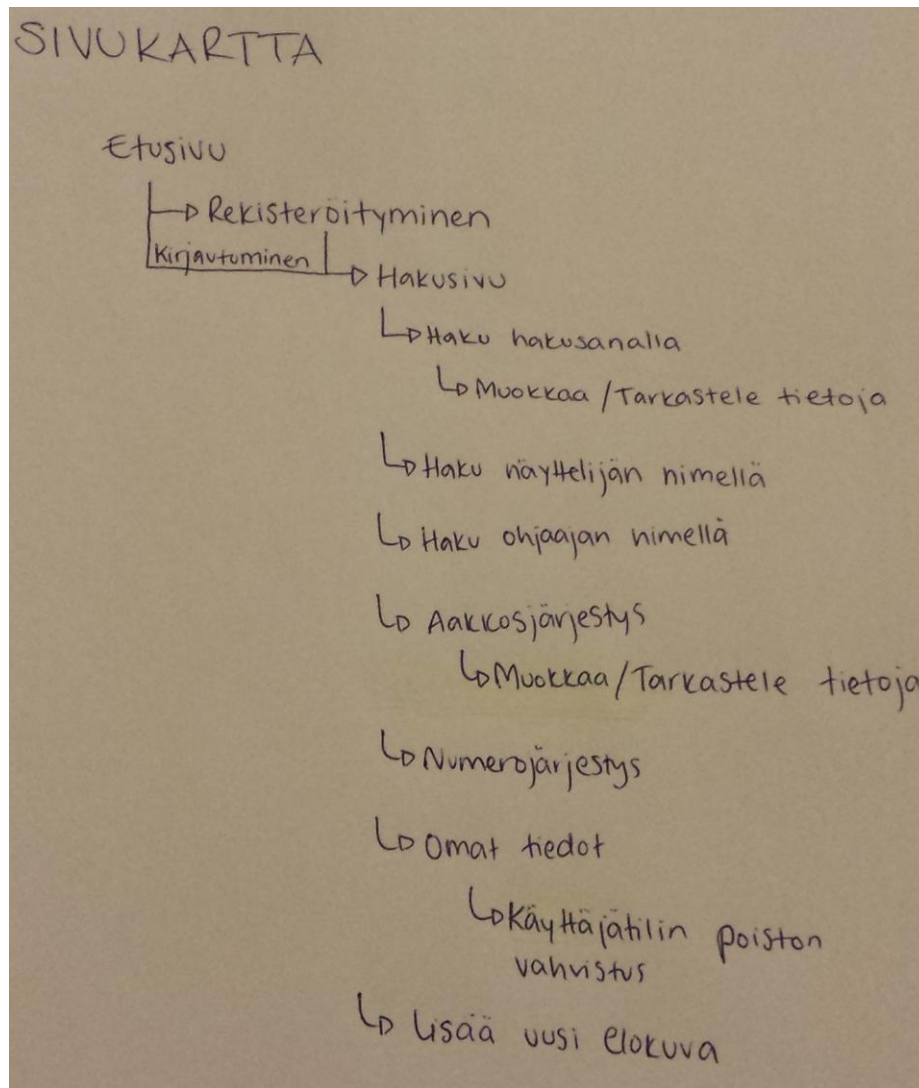 SIVUKARTTA
Etusivu
Rekisteröityminen
Kirjautuminen
Hakusivu
Haku hakusanalla
Muokkaa/Tarkastele tietoja
Haku näyttelijän nimellä
Haku ohjaajan nimellä
Aakkosjärjestys
Muokkaa/Tarkastele tietoja
Numerojärjestys
Omat tiedot
Käyttäjätilin poiston
vahvistus
Lisää uusi elokuva